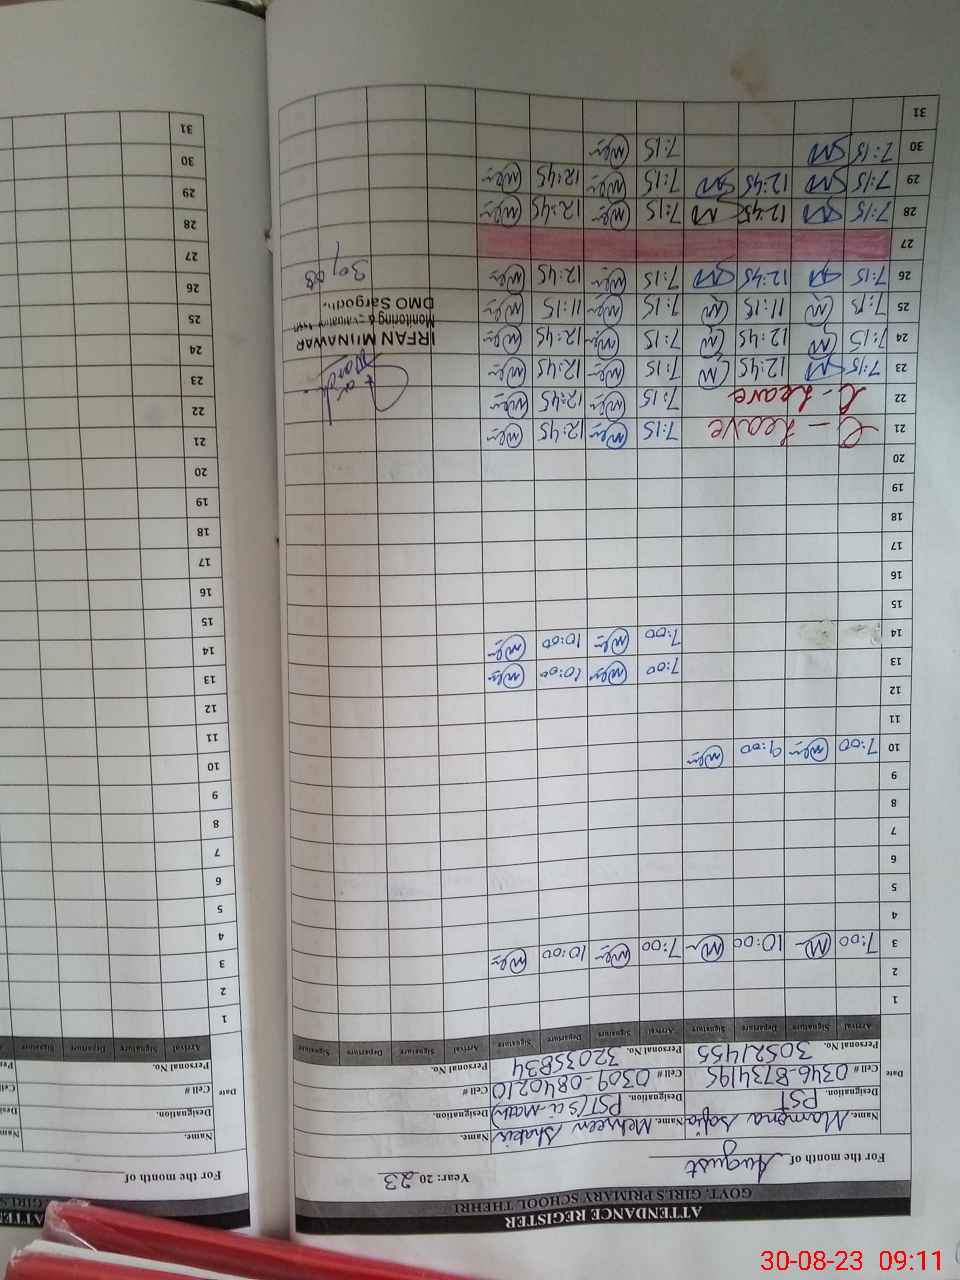 ATTENDANCE REGISTER
GOVT. GIRLS PRIMARY SCHOOL THEHRI
For the month of August Year: 2023
Name. Mamona Safia Name. Mehreen Shakir Name.
Designation. PST Designation. PST (Sci-Math) Designation.
Date Cell # 0346-8734195 Cell # 0309-0840210 Cell #
Personal No. 30521455 Personal No. 32035834 Personal No.
Arrival Signature Departure Signature Arrival Signature Departure Signature Arrival Signature Departure Signature
1
2
3 7:00 10:00 7:00 10:00
4
5
6
7
8
9
10 7:00 9:00
11
12
13 7:00 10:00
14 7:00 10:00
15
16
17
18
19
20
21 C-Leave 7:15 12:45
22 C-Leave 7:15 12:45
23 7:15 12:45 7:15 12:45
24 7:15 12:45 7:15 12:45
25 7:15 11:15 7:15 11:15
26 7:15 12:45 7:15 12:45
27
28 7:15 12:45 7:15 12:45
29 7:15 12:45 7:15 12:45
30 7:15 7:15
31
IRFAN MUNAWAR
Monitoring & Evaluation
DMO Sargodha
30/08
ATTEN
GIRLS
For the month of
Name
Designation.
Date Cell #
Personal No.
Arrival Signature Departure Signature
1
2
3
4
5
6
7
8
9
10
11
12
13
14
15
16
17
18
19
20
21
22
23
24
25
26
27
28
29
30
31
30-08-23 09:11